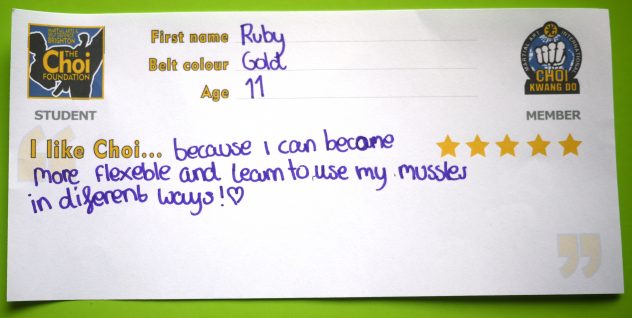 MARTIAL ARTS
BRIGHTON
THE
Choi
FOUNDATION
STUDENT
First name Ruby
Belt colour Gold
Age 11
MARTIAL ART INTERNATIONAL
CHOI
KWANG DO
MEMBER
I like Choi... because I can become
more flexeble and learn to use my mussles
in diferent ways!♡